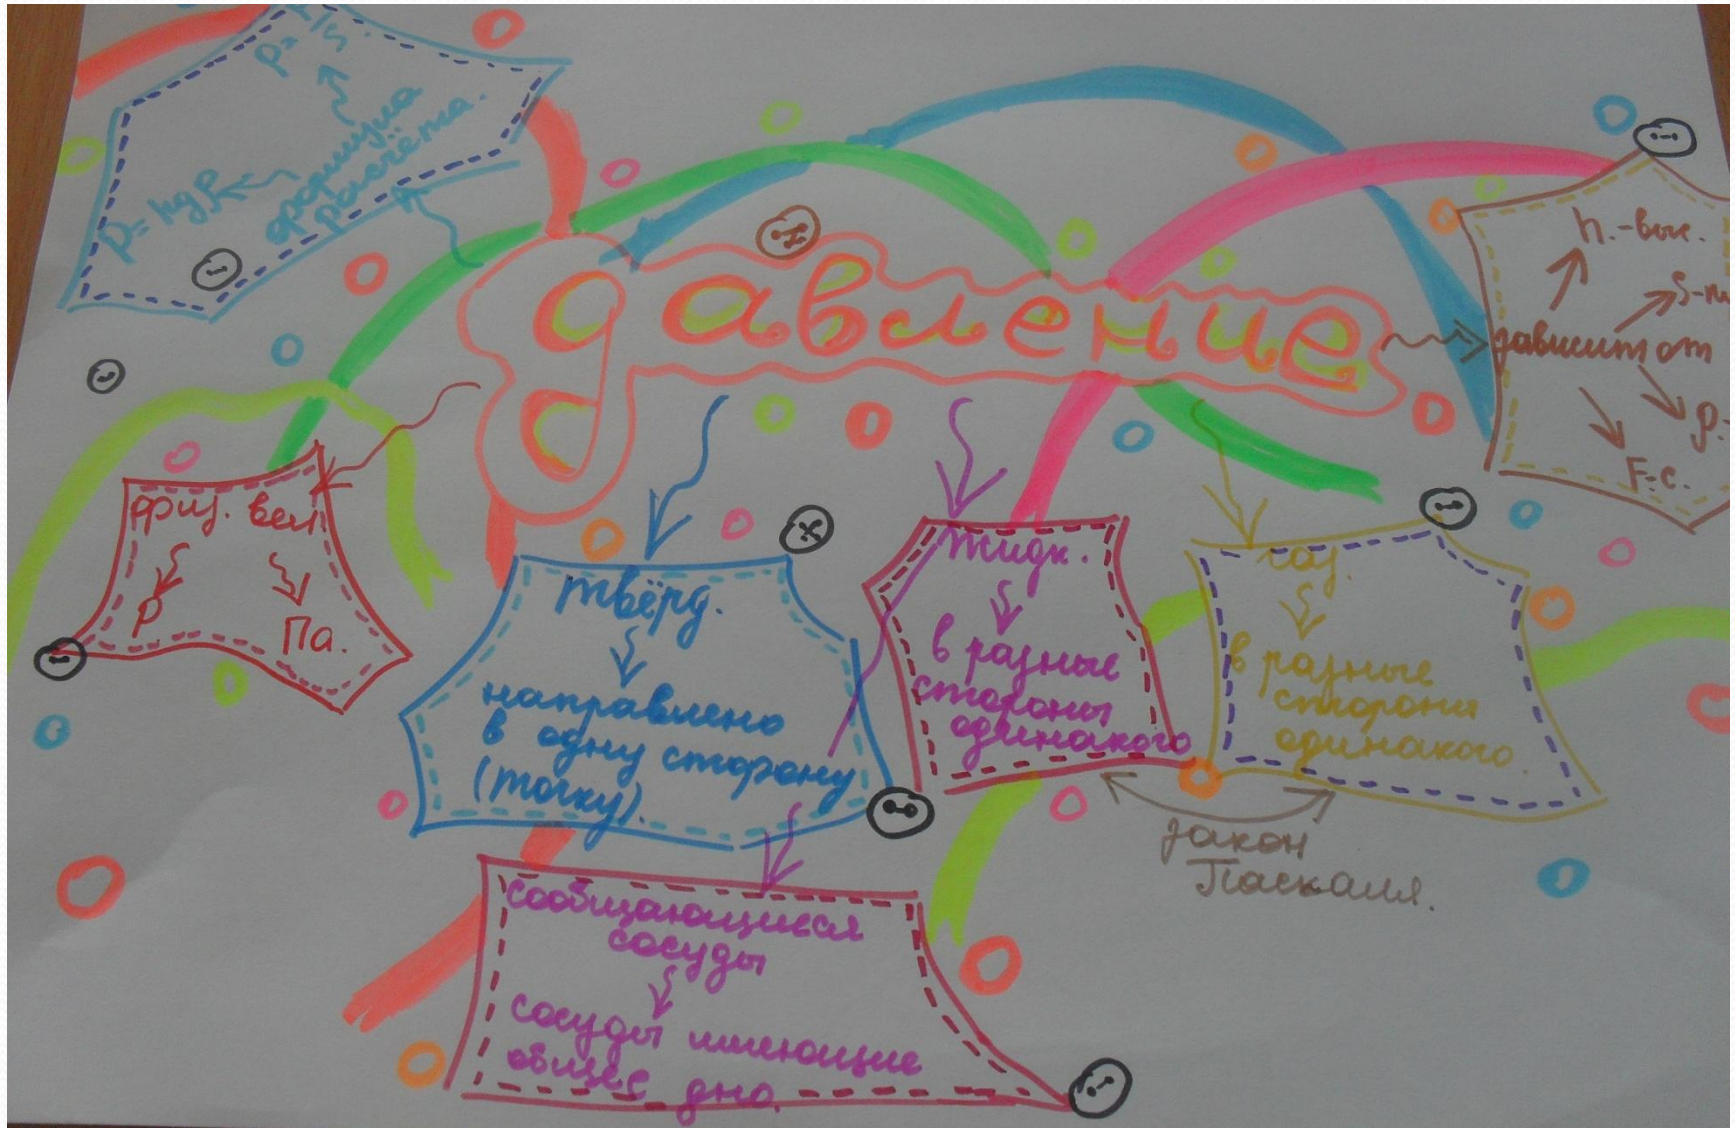 p=
S.
формула
расчёта.
p=hgρ
давление
h.-выс.
S-п
зависит от
ρ.-
F-с.
физ. вел
P
Па.
твёрд.
направлено
в одну сторону
(точку).
жидк.
в разные
стороны
одинакого
газ.
в разные
стороны
одинакого.
закон
Паскаля.
сообщающиеся
сосуды
сосуды имеющие
общее дно.